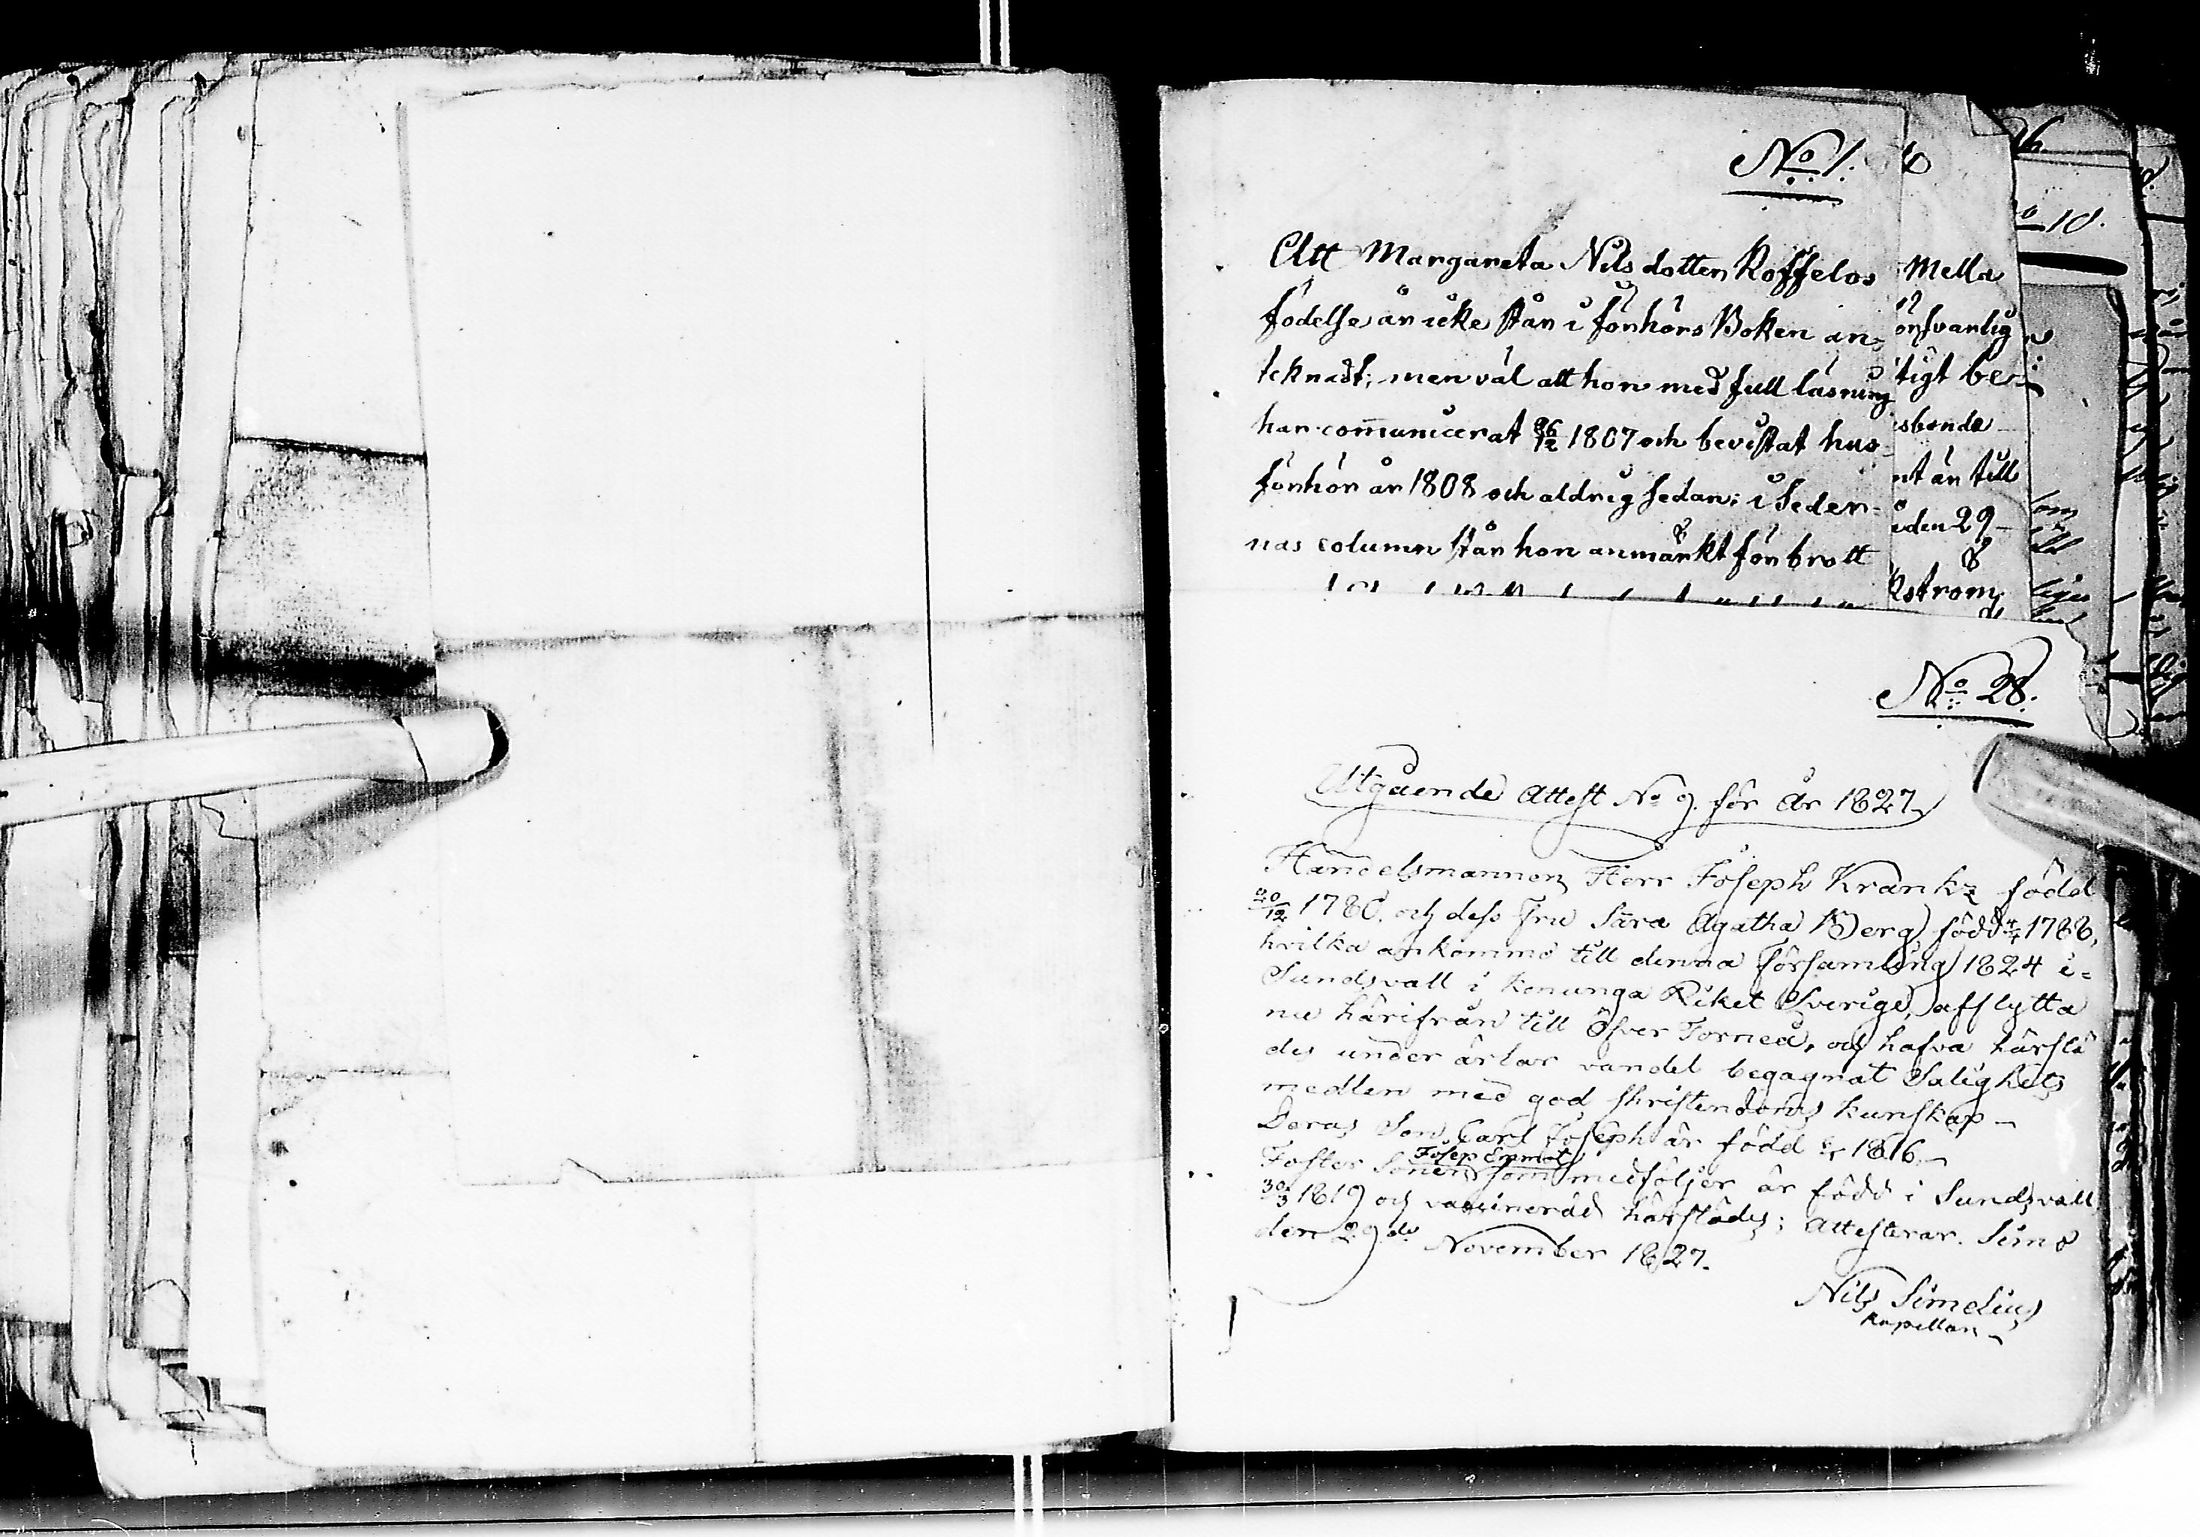 No 1.
Att Margareta Nilsdotter Koffelos
födelse år icke står i förhörs Boken an-
teknadt; men väl att hon med full läsning
har communicerat 26/12 1807 och bevistat hus-
förhör år 1808 och aldrig sedan; i Seder-
nas column står hon anmärkt för brott
Mella
örsvarlig
tigt be-
sbonde
nt än till
den 29
kström
No 10.
No 28.
Utgående Attest No 9. för År 1827
Handelsmannen Herr Joseph Krankz född
20/12 1780, och dess Fru Sara Agatha Berg, född 4/4 1788,
hvilka ankommo till denna Församling 1824 i-
Sundsvall i Konunga Riket Sverige, afflytta
nu härifrån till Öfver Torneå, och hafva härstä
des under ärbar vandel begagnat Salighets
medlen med god Christendoms kunskap –
Deras Son Carl Joseph är född 1816 –
Josep Emmot
Foster Sonen som medföljer är född i Sundsvall
30/3 1819 och vaccinerad härstädes; Attesterar. Simo
den 29de November 1827.
Nils Simelius
Kapellan